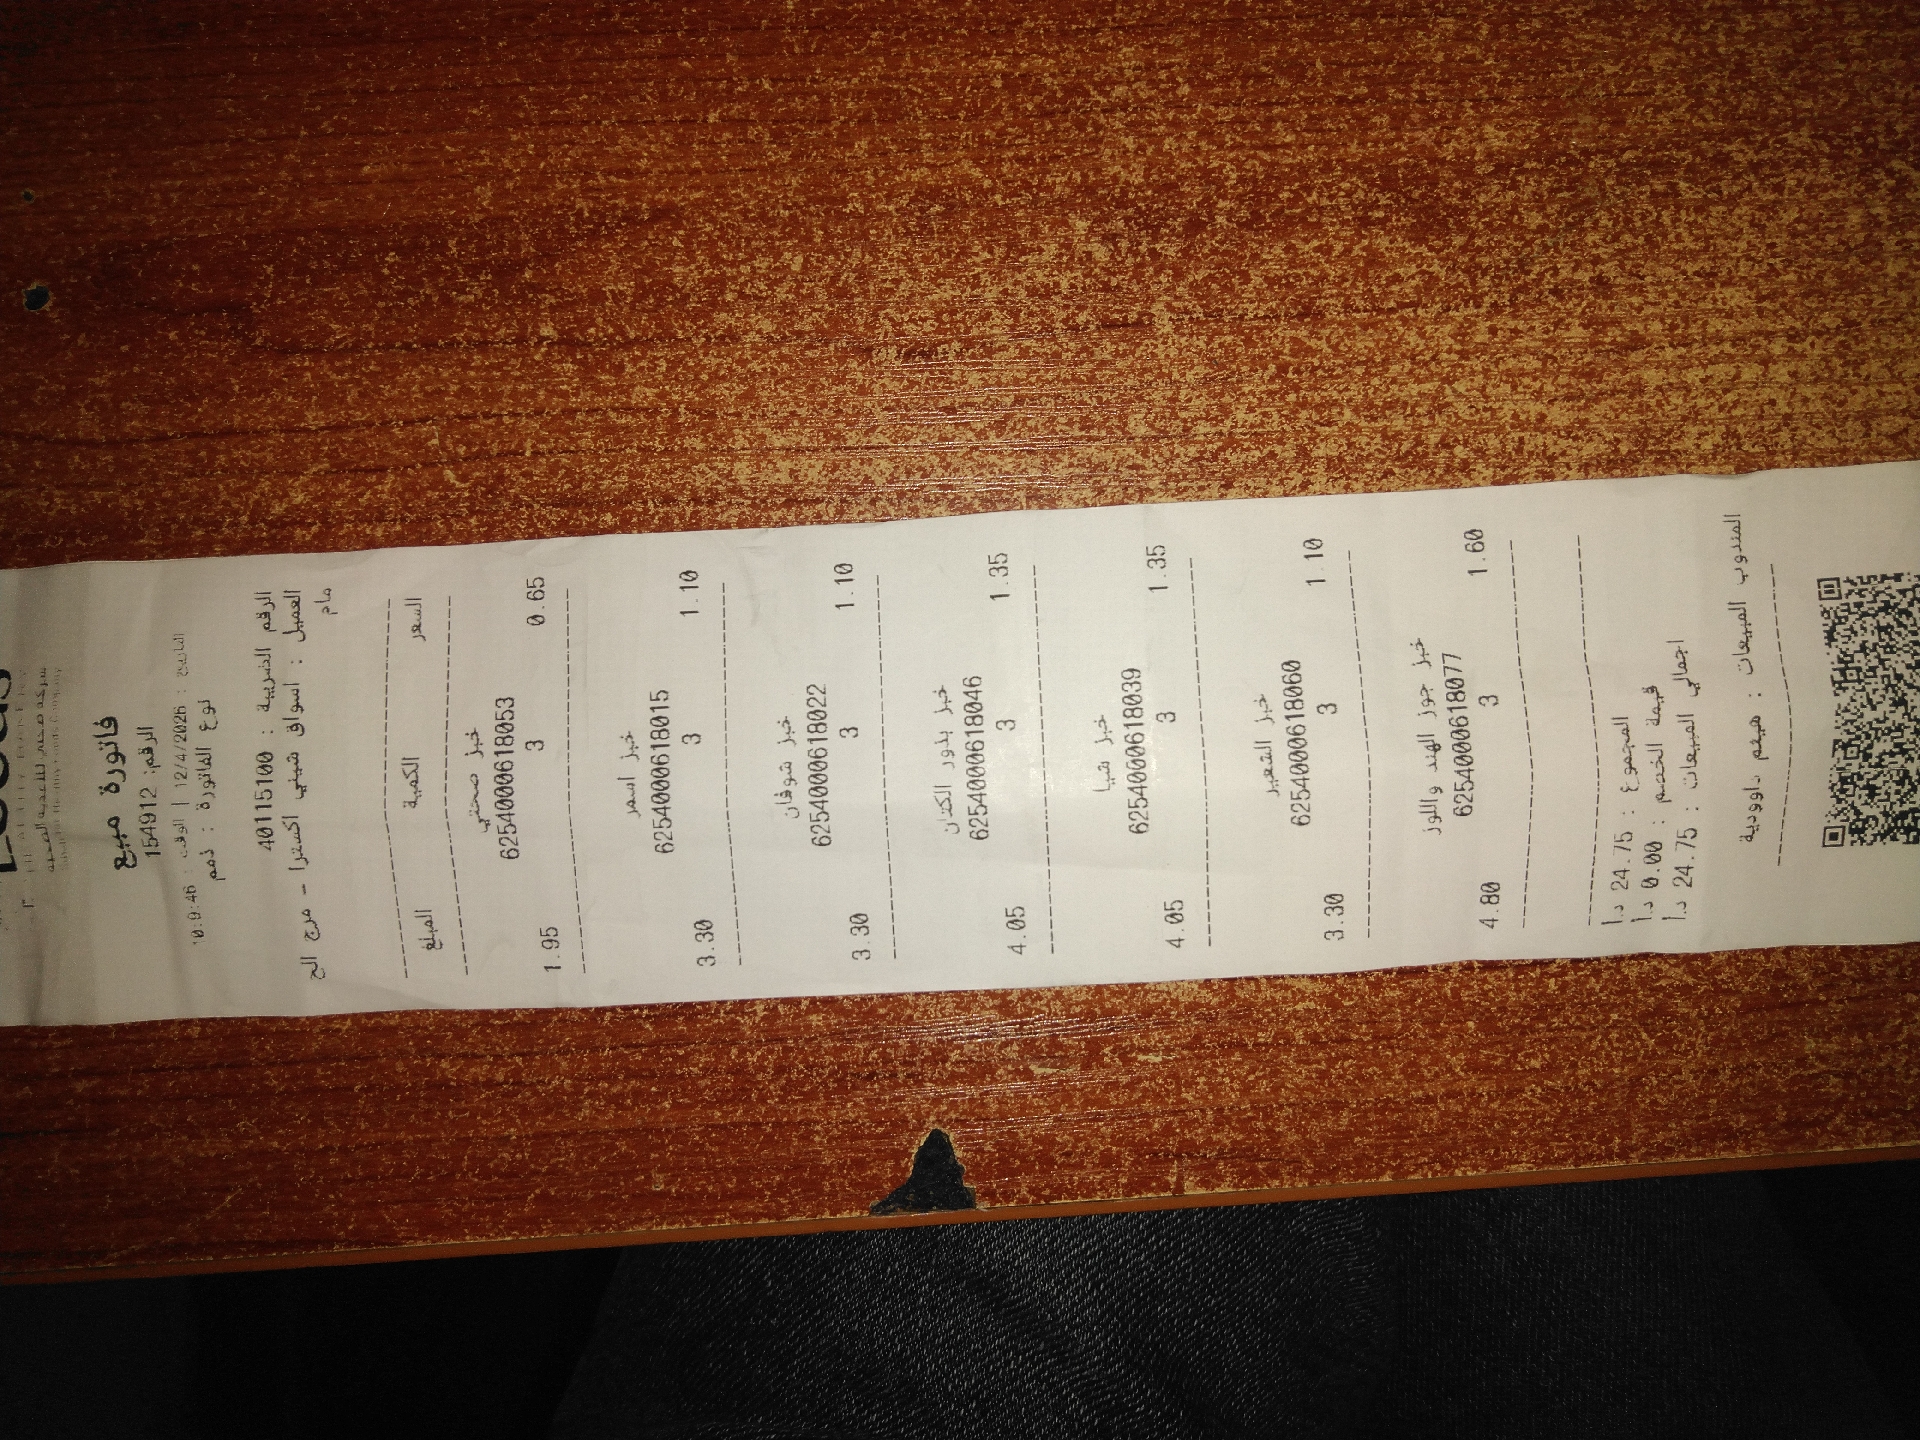 فاتورة مبيع
الرقم: 154912
التاريخ : 12/4/2026 | الوقت : 10:9:46
نوع الفاتورة : ذمم
الرقم الضريبة : 40115100
العميل : اسواق شيني اكسترا - مرج الح
مام
السعر الكمية المبلغ
خبز صحتي
6254000618053
0.65 3 1.95
خبز اسمر
6254000618015
1.10 3 3.30
خبز شوفان
6254000618022
1.10 3 3.30
خبز بذور الكتان
6254000618046
1.35 3 4.05
خبز شيا
6254000618039
1.35 3 4.05
خبز الشعير
6254000618060
1.10 3 3.30
خبز جوز الهند واللوز
6254000618077
1.60 3 4.80
المجموع : 24.75 د.أ
قيمة الخصم : 0.00 د.أ
اجمالي المبيعات : 24.75 د.أ
المندوب المبيعات : هيثم داوودية